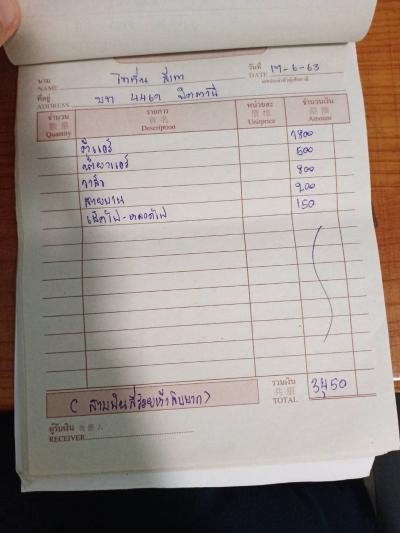 นาม
NAME สีเทา
วันที่ 17-6-63
DATE
เลขประจำตัวผู้เสียภาษี
ที่อยู่
ADDRESS บท 4469 ปัตตานี
จำนวน 數量 Quantity รายการ 貨名 Description หน่วยละ 價格 Unitprice จำนวนเงิน 銀額 Amount
ตู้แอร์ 1800
น้ำยาแอร์ 500
วาล์ว 800
สายพาน 200
เช็คไฟ-หลอดไฟ 150
(สามพันสี่ร้อยห้าสิบบาท) รวมเงิน 共銀 TOTAL 3,450
ผู้รับเงิน 收銀人
RECEIVER